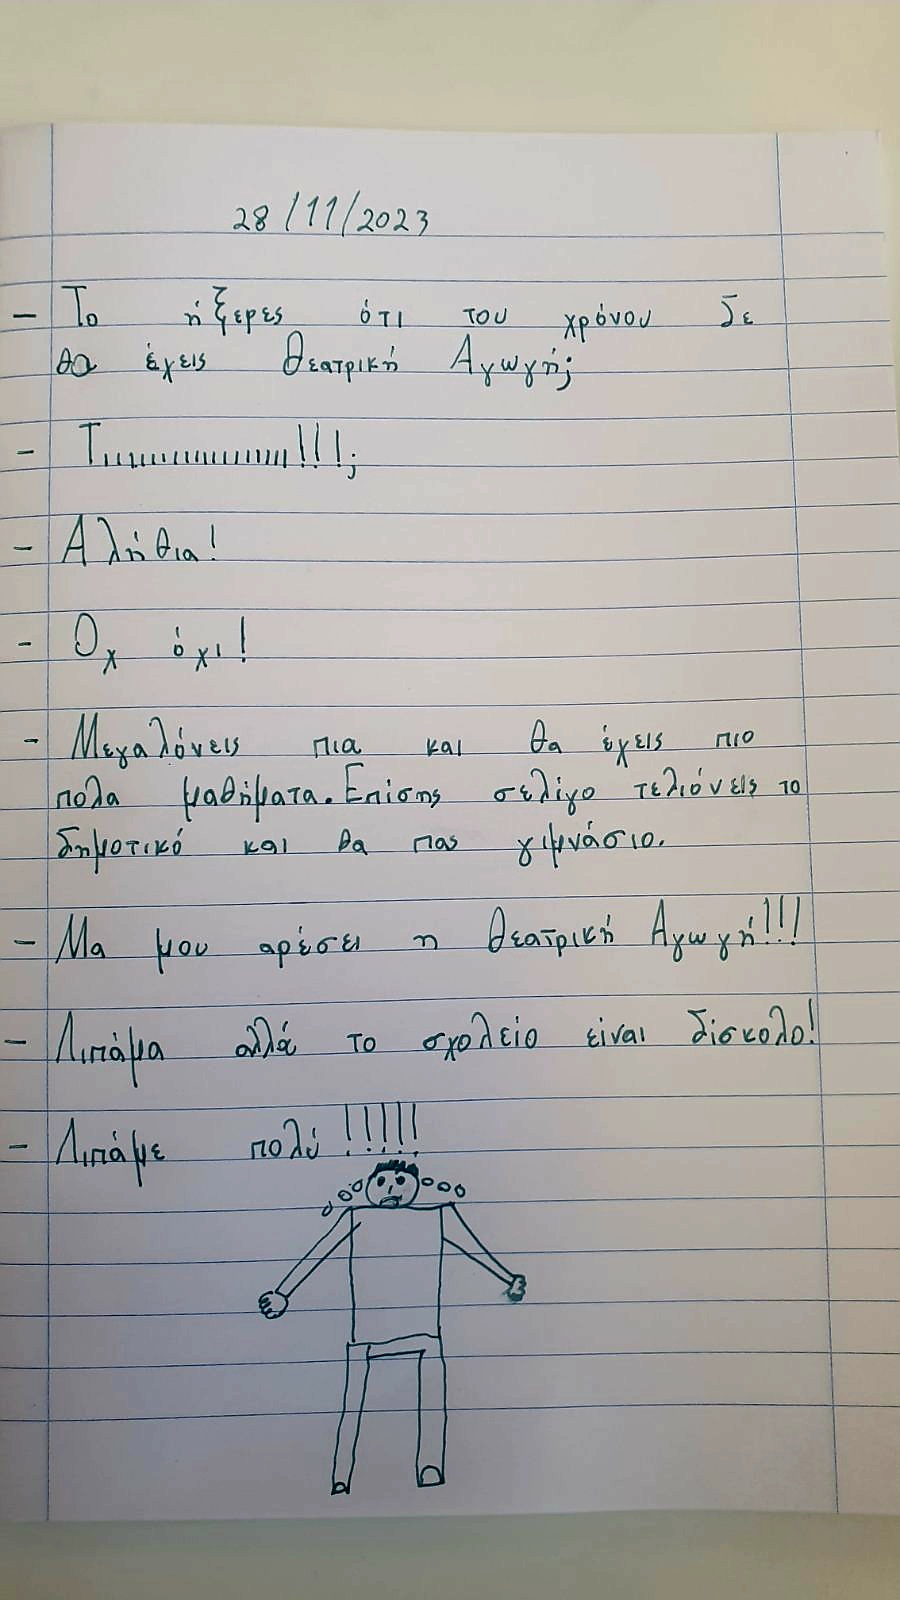 28/11/2023
- Το ήξερες ότι του χρόνου δε
θα έχεις Θεατρική Αγωγή;
- Τιιιιιιιιιιιιιιιιιι!!!;
- Αλήθια!
- Οχ όχι!
- Μεγαλόνεις πια και θα έχεις πιο
πολα μαθήματα. Επίσης σελίγο τελιόνεις το
δημοτικό και θα πας γιμνάσιο.
- Μα μου αρέσει η Θεατρική Αγωγή!!!
- Λιπάμα αλλά το σχολείο είναι δίσκολο!
- Λιπάμε πολύ !!!!!